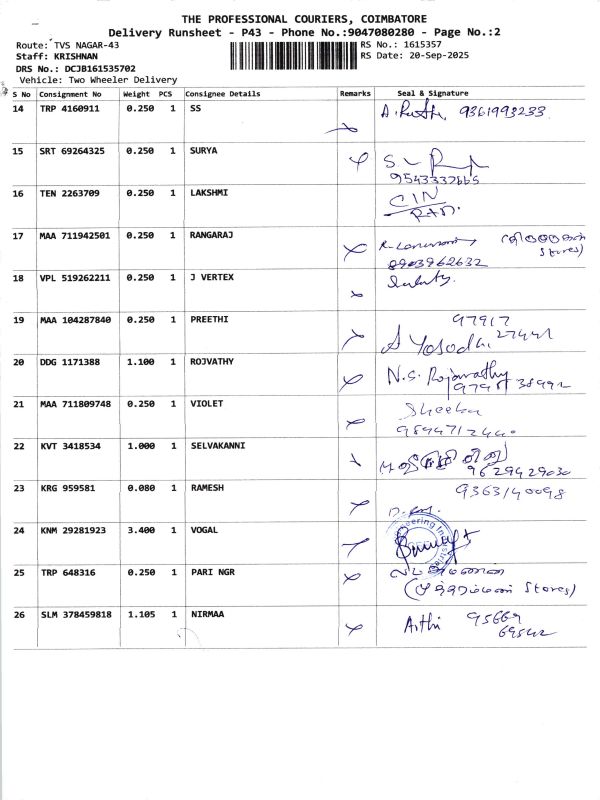 THE PROFESSIONAL COURIERS, COIMBATORE
Delivery Runsheet - P43 - Phone No.:9047080280 - Page No.:2
Route: TVS NAGAR-43
RS No.: 1615357
Staff: KRISHNAN
RS Date: 20-Sep-2025
DRS No.: DCJB161535702
Vehicle: Two Wheeler Delivery
S No Consignment No Weight PCS Consignee Details Remarks Seal & Signature
14 TRP 4160911 0.250 1 SS 9361993233
15 SRT 69264325 0.250 1 SURYA
9543337665
16 TEN 2263709 0.250 1 LAKSHMI CIN
17 MAA 711942501 0.250 1 RANGARAJ
Stores)
8903962632
18 VPL 519262211 0.250 1 J VERTEX
19 MAA 104287840 0.250 1 PREETHI 97917
A Yosodha 27441
20 DDG 1171388 1.100 1 ROJVATHY N.S. Rojavathy
21 MAA 711809748 0.250 1 VIOLET Sheeba
22 KVT 3418534 1.000 1 SELVAKANNI
9629429030
23 KRG 959581 0.080 1 RAMESH 9363140098
24 KNM 29281923 3.400 1 VOGAL
25 TRP 648316 0.250 1 PARI NGR
Stores)
26 SLM 378459818 1.105 1 NIRMAA Arthi 95669
69542